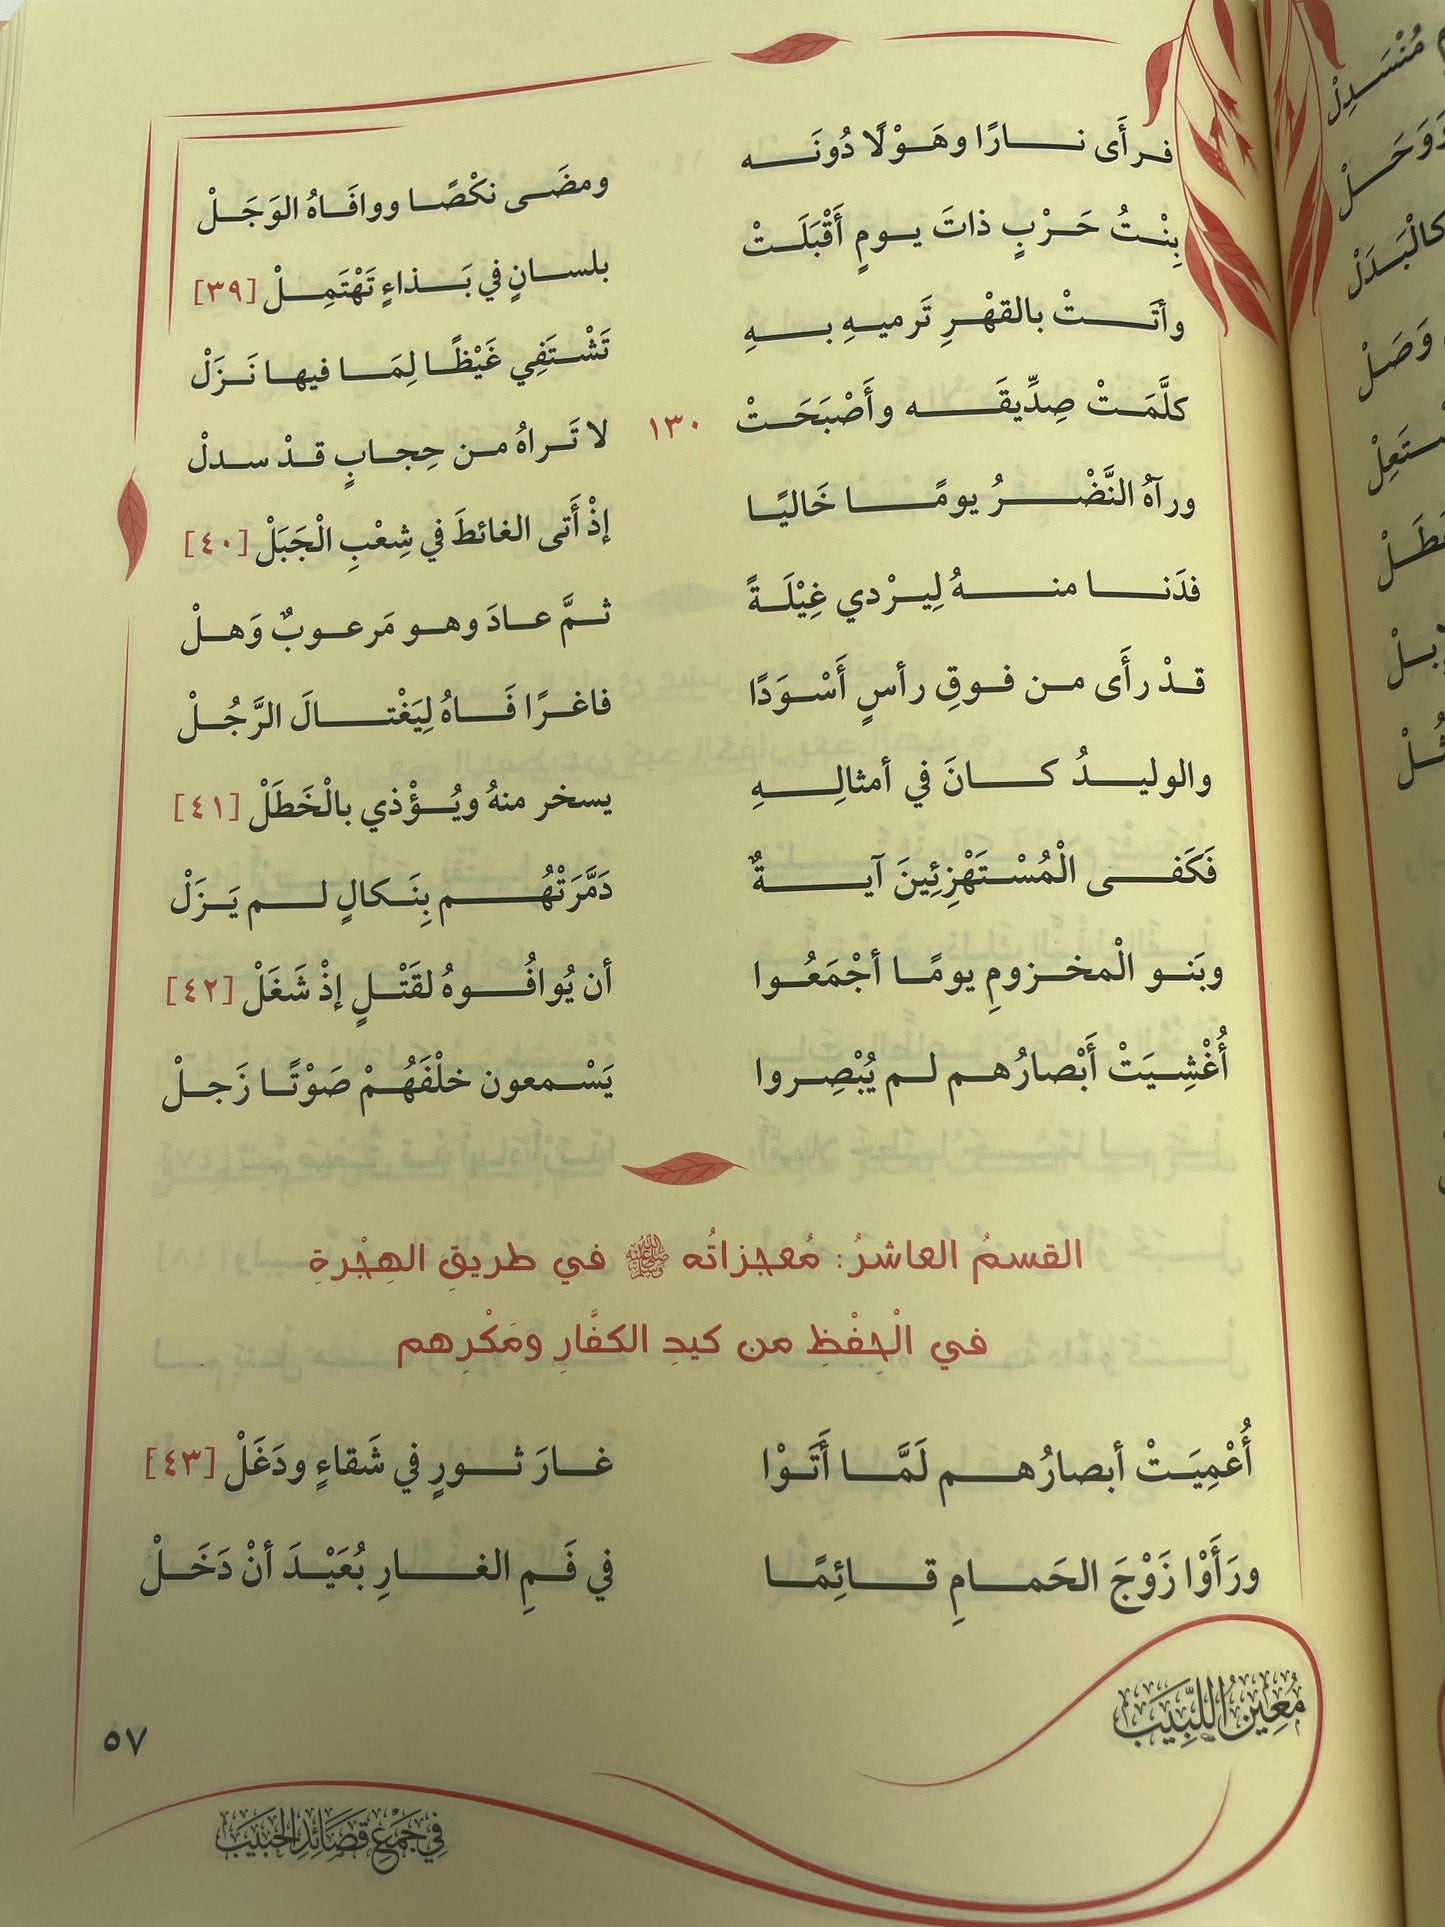 فرأَى نارًا وهَوْلًا دُونَه ومضَى نكْصًا ووافَاهُ الوَجَلْ
بِنْتُ حَرْبٍ ذاتَ يومٍ أَقْبَلَتْ بلسانٍ في بَذاءٍ تَهْتَمِلْ [٣٩]
وأتَتْ بالقهْرِ تَرميهِ بهِ تَشْتَفِي غَيْظًا لِمَا فيها نَزَلْ
كلَّمَتْ صِدِّيقَه وأَصْبَحَتْ ١٣٠ لا تَراهُ من حِجابٍ قدْ سدلْ
ورآهُ النَّضْرُ يومًا خَاليًا إذْ أَتى الغائطَ في شِعْبِ الْجَبَلْ [٤٠]
فدَنا منهُ لِيرْدي غِيْلَةً ثمَّ عادَ وهو مَرعوبٌ وَهلْ
قدْ رأَى من فوقِ رأسٍ أَسْوَدًا فاغرًا فَاهُ لِيَغْتالَ الرَّجُلْ
والوليدُ كانَ في أمثالِهِ يسخر منهُ ويُؤْذي بالْخَطَلْ [٤١]
فَكَفى الْمُسْتَهْزِئِينَ آيةٌ دَمَّرَتْهُم بِنَكالٍ لم يَزَلْ
وبَنو الْمخزومِ يومًا أجْمَعُوا أن يُوافُوهُ لقَتْلٍ إذْ شَغَلْ [٤٢]
أُغْشِيَتْ أَبْصارُهم لم يُبْصِروا يَسْمعون خلْفَهُمْ صَوْتًا زَجلْ
القسمُ العاشرُ: مُعجزاتُه ﷺ في طريقِ الهِجْرةِ
في الْحِفْظِ من كيدِ الكفَّارِ ومَكْرِهم
أُعْمِيَتْ أبصارُهم لَمَّا أَتَوْا غارَ ثورٍ في شَقاءٍ ودَغَلْ [٤٣]
ورَأَوْا زَوْجَ الحَمامِ قائِمًا في فَمِ الغارِ بُعَيْدَ أنْ دَخَلْ
مُعِينُ اللَّبِيَبَ
٥٧
فِي جَمْعِ قَصَائِدِ الحَبَيَبَ
مُنْسَدِلْ
وَوَحَلْ
كالْبَدَلْ
وَصَلْ